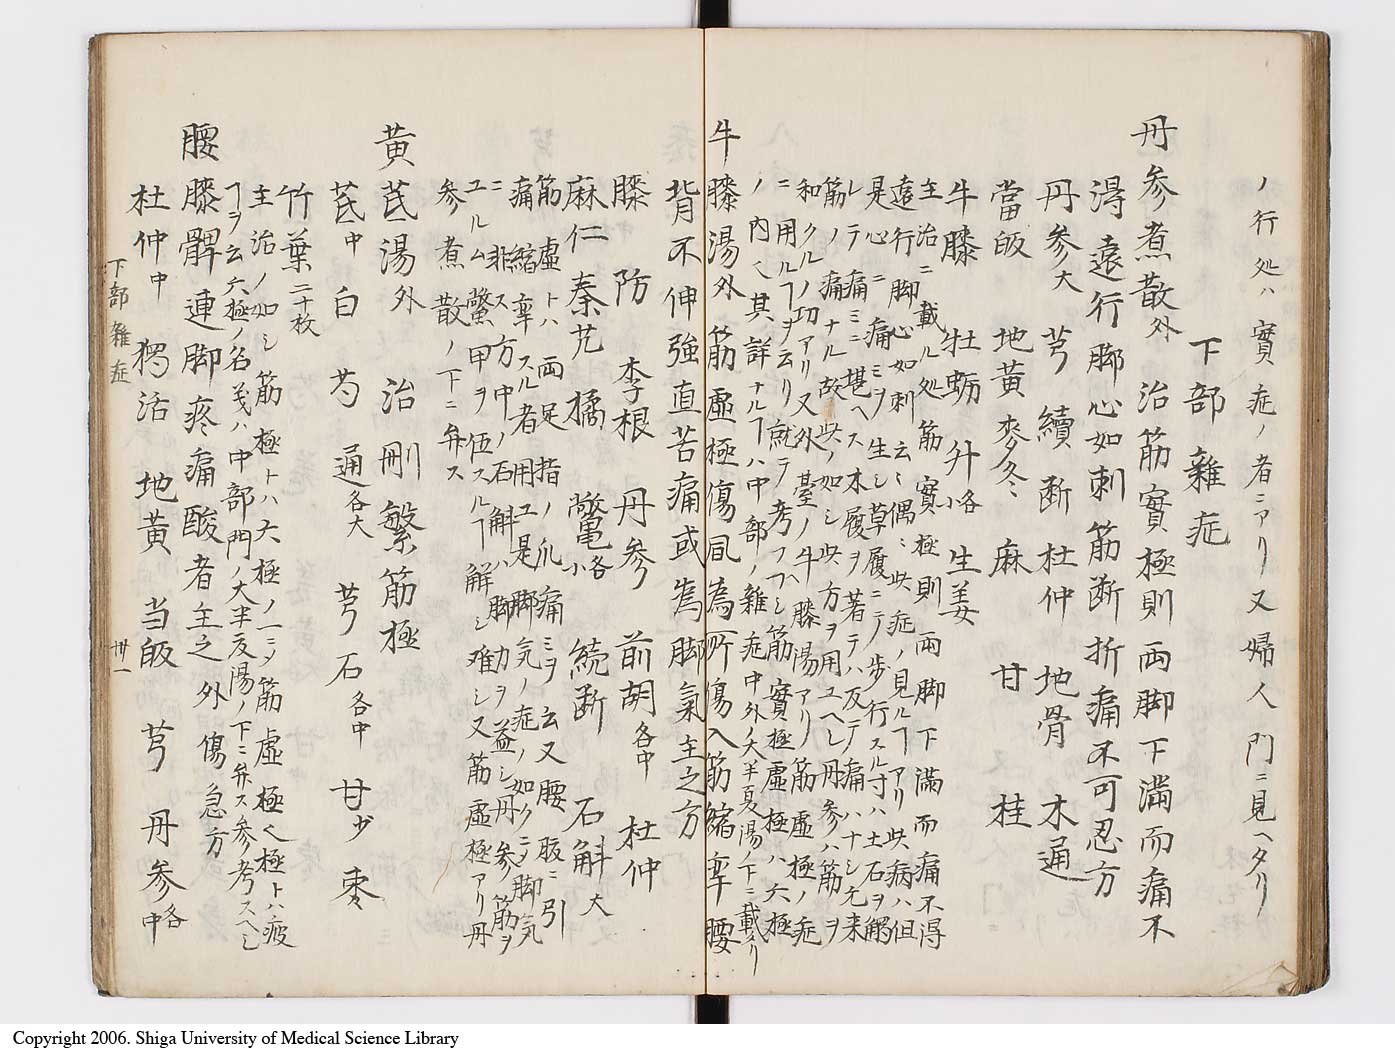 ノ行処ハ實症ノ者ニアリ又婦人門ニ見ヘタリ
下部雜症
丹参煮散外 治筋實極則両脚下満而痛不
得遠行脚心如刺筋断折痛不可忍方
丹参大 芎 續断 杜仲 地骨 木通
當皈 地黃 麥冬 麻 甘 桂
牛膝 牡蛎 升各小 生姜
主治ニ載ル処筋實極則両脚下滿而痛不得
遠行脚心如刺云々偶々此症ノ見ルヿアリ此病ハ但
是心ニ痛ミヲ生シ草履ニテノ歩行スル寸ハ土石ヲ觸
レテ痛ミニ堪ヘス木履ヲ著テハ反テ痛ハナシ元来
筋ノ痛ナル故此ノ如シ此方ヲ用ユヘシ丹参ハ筋ヲ
和クルノ功アリ又外臺ノ牛膝湯アリ筋虚極ノ症
ニ用ルヿヲ云リ就テ考フヘシ筋實極虚極ハ六極
ノ内也其詳ナルヿハ中部ノ雜症中外ノ大半夏湯ノ下ニ載タリ
牛膝湯外 筋虚極傷風為所傷入筋縮牽腰
背不伸強直苦痛或為脚氣主之方
膝 防 李根 丹参 前胡各中 杜仲
麻仁 秦艽 橘 鼈各小 続断 石斛大
筋虚トハ両足指ノ爪痛ミヲ云又腰腹ニ引
痛縮牽スル者用ユ是脚気ノ症ノ如クニヲ脚気
ニ非ス方中ノ石斛ハ脚力ヲ益シ丹参筋ヲ
ユルム鱉甲ヲ伍スルヿ解シ难シ又筋虚極アリ丹
参煮散ノ下ニ弁ス
黃芪湯外 治刪繁筋極
芪中 白芍 通各大 芎 石各中 甘少 棗
竹葉二十枚
主治ノ如シ筋極トハ六極ノ一ニメ筋虚極也極トハ疲
ヿヲ云六極ノ名義ハ中部門ノ大半夏湯ノ下ニ弁ス参考スヘシ
腰膝髀連脚疼痛酸者主之外 傷急方
杜仲中 獨活 地黃 当皈 芎 丹参各中
下部雜症
卅一
Copyright 2006. Shiga University of Medical Science Library